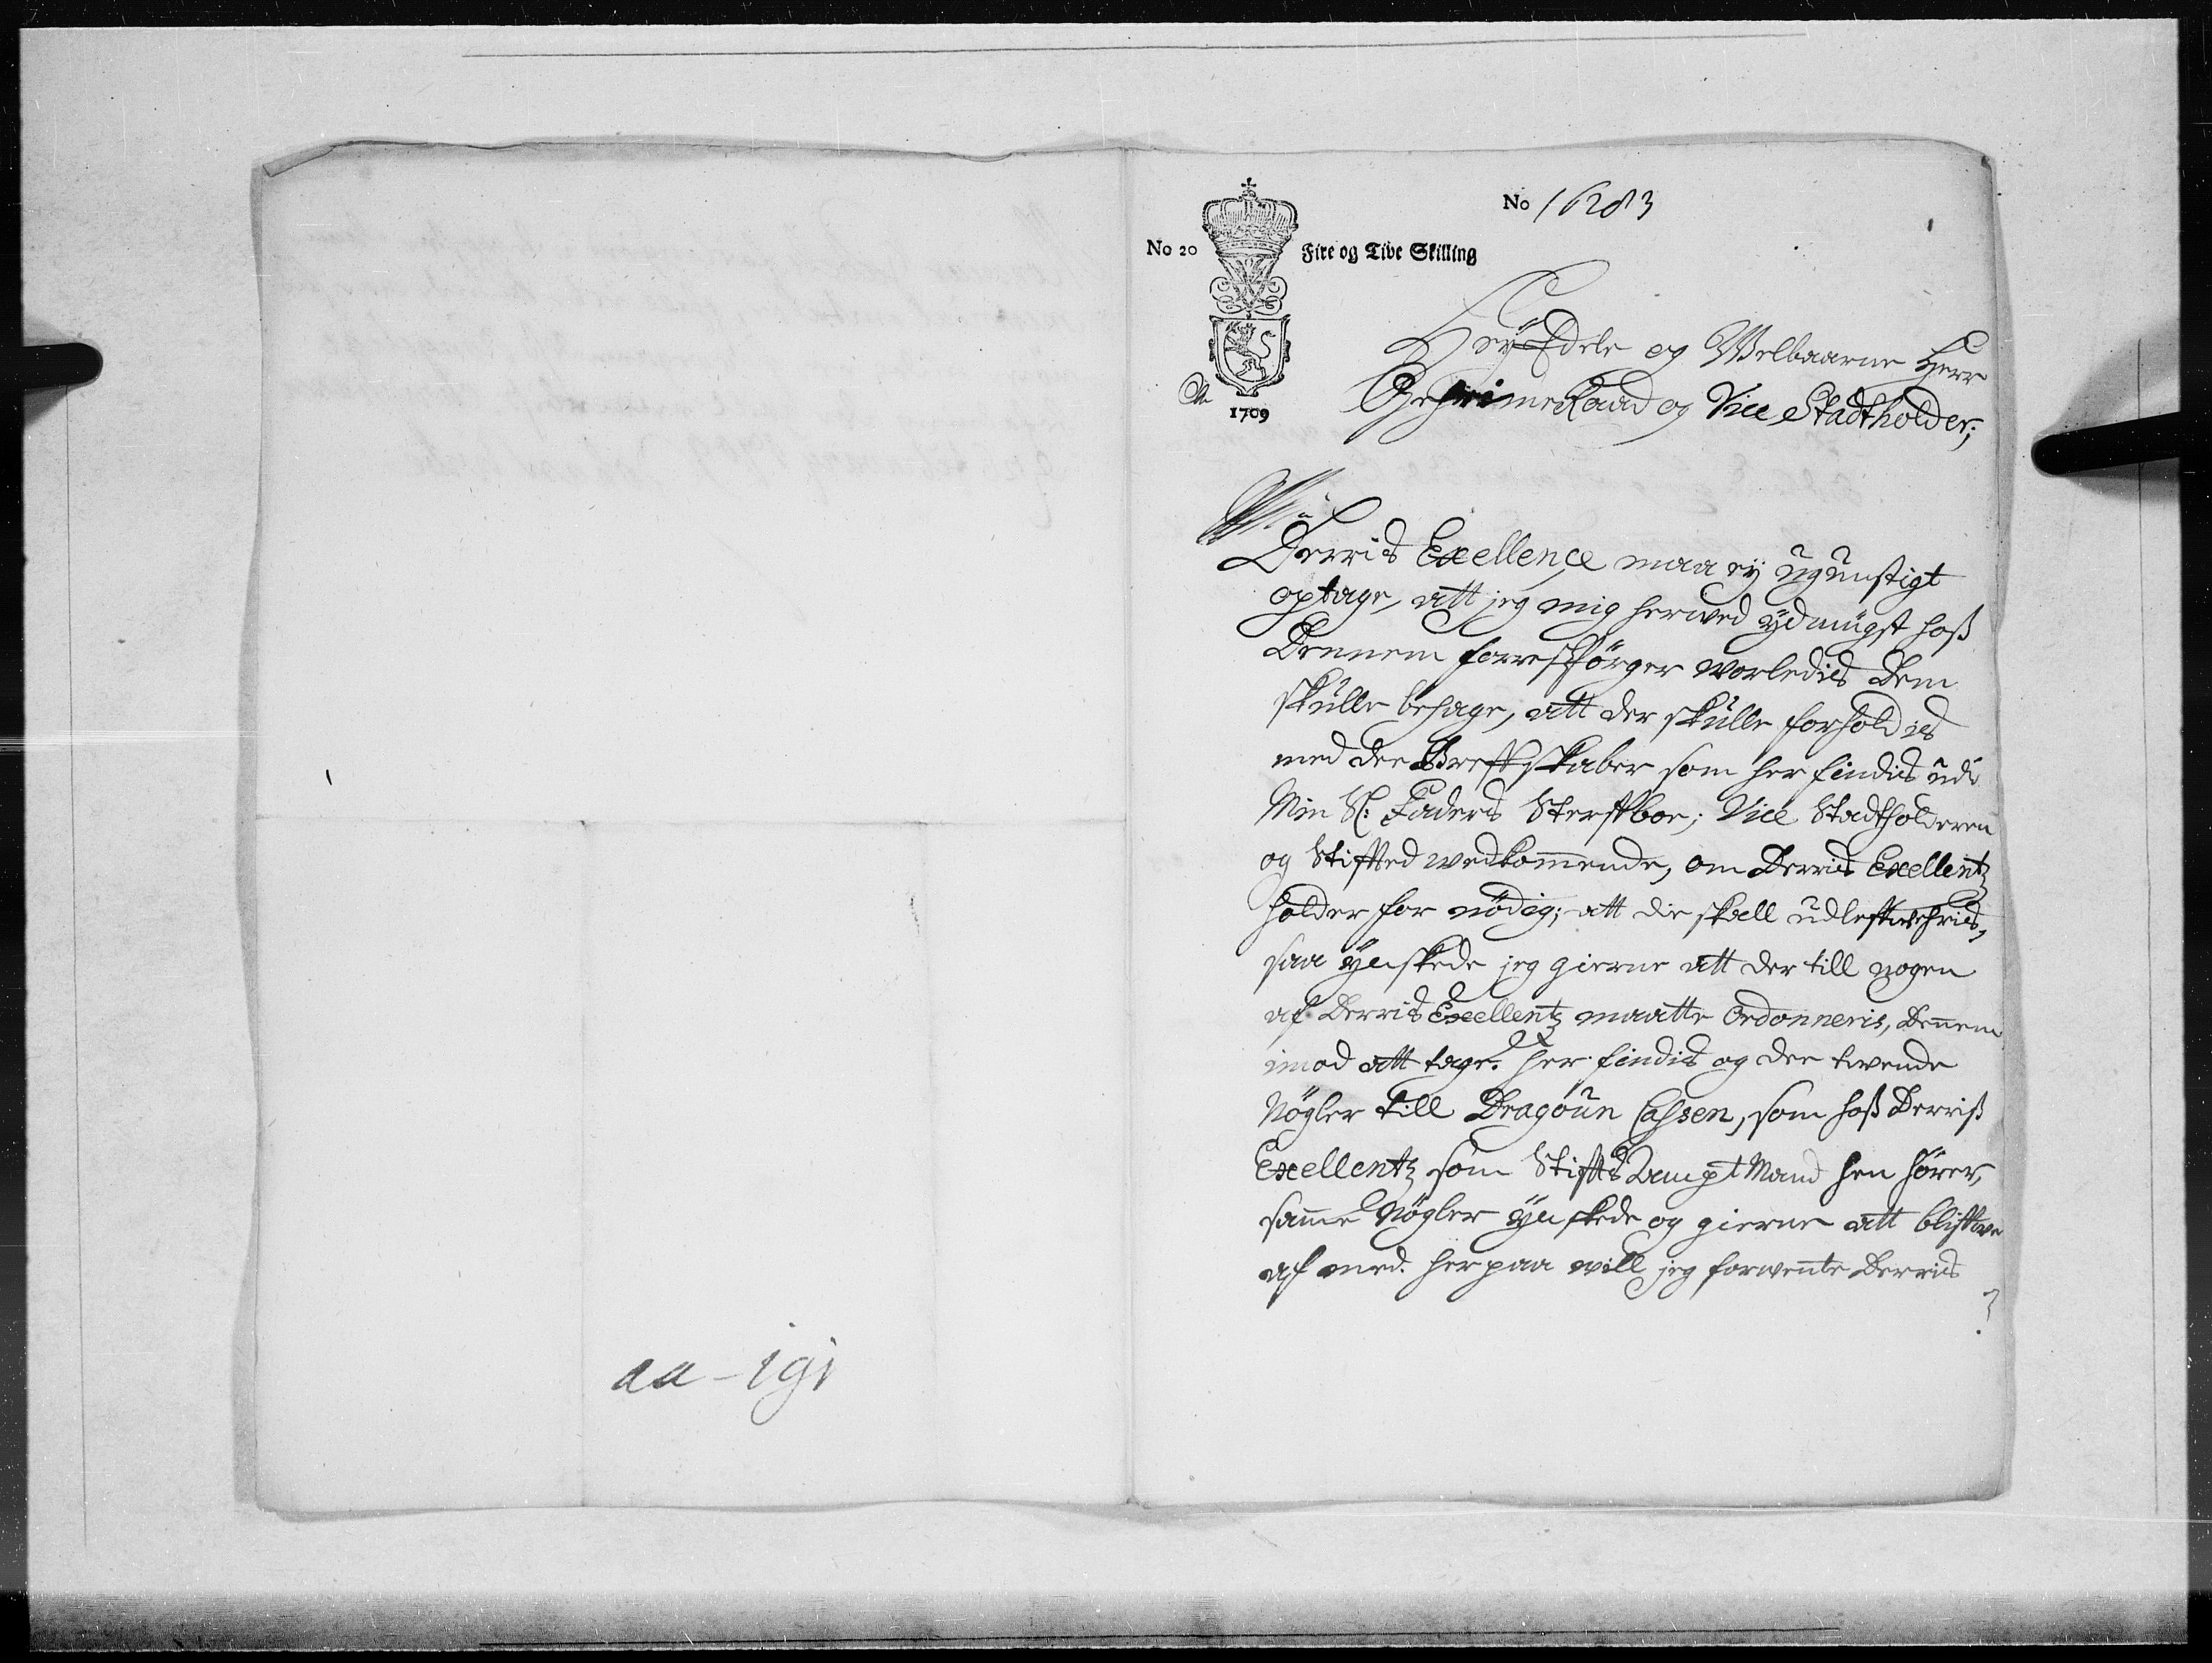 No 16283
No 20 Fire og Tive Skilling
1709
HøyEdele og Welbaarne Herr
GeheimeRaad og Vice Stadtholder;
Derris Excellence maa ey ugunstigt
optage, att jeg mig herwed ydmügst hoß
Dennem forespörger worledis Dem
skulle behage, att der skulle forholdes
med dee Brefskaber som her findis udi
Min Sl: Faders Sterfboe; Vice Stadtholderen
og Stifted wedkommende, om Derris Excellentz
holder for nödig; att die skall udlefwehris,
saa ynskede jeg gierne att der till nogen
af Derris Excellentz maatte Ordonneris, Dennem
imod att tage. her findis og dee twende
Nögler till Dragoun Cassen, som hoß Derriß
Excellentz som StiftsAmptMand hen hörer,
samme Nögler ynskede og gierne att blifwe
af med. her paa will jeg forwente Derris
aa-191